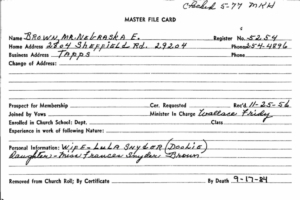 Checked 5-77 MKW
MASTER FILE CARD
Name Brown, Mr. Nebraska E. Register No. 5254
Home Address 2804 Sheffield Rd. 29204 Phone 254-4896
Business Address Tapps Phone
Change of Address:
Prospect for Membership Cer. Requested Rec'd 11-25-56
Joined by Vows Minister in Charge Wallace Fridy
Enrolled in Church School: Dept. Class
Experience in work of following Nature:
Personal Information: Wife - Lula Snyder (Doolie)
Daughter - Miss Frances Snyder Brown
Removed from Church Roll; By Certificate By Death 9-17-84